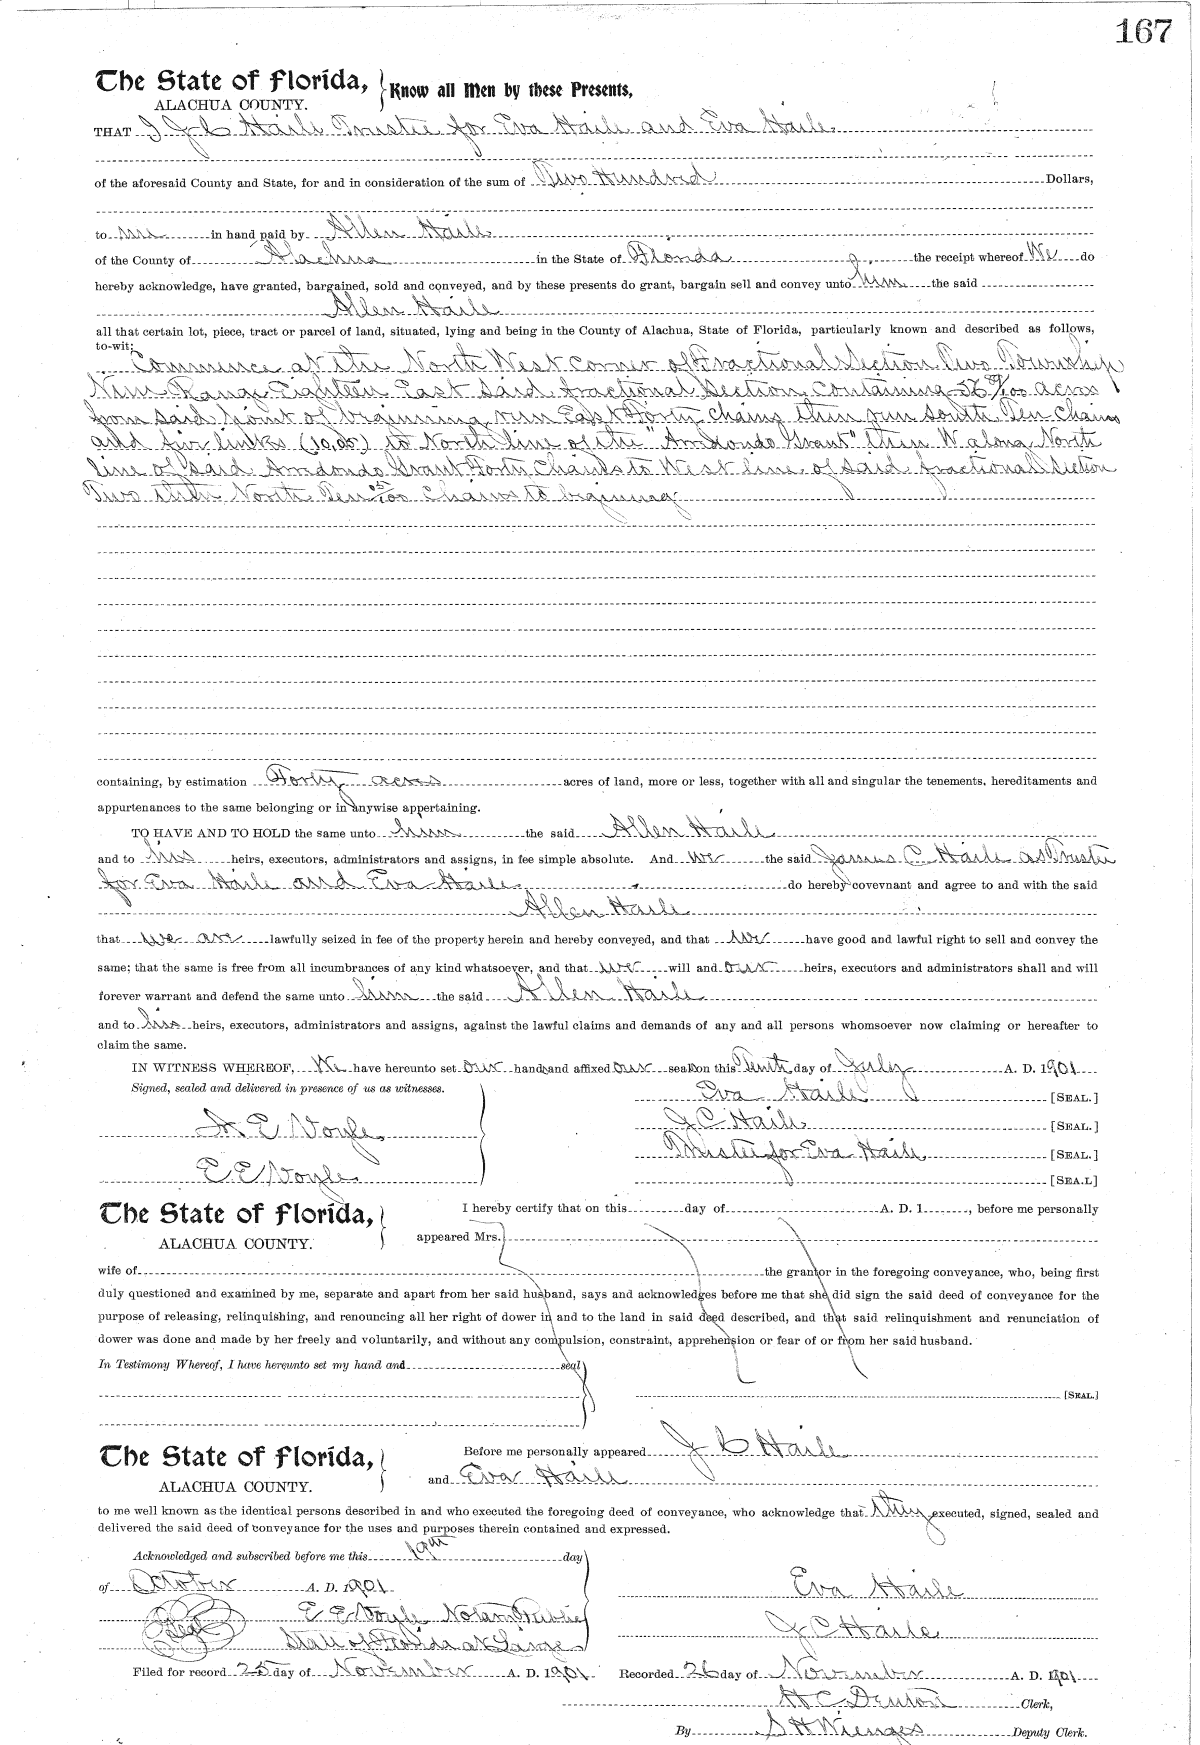 167
The State of Florida, Know all Men by these Presents,
ALACHUA COUNTY.
THAT I J C Haile Trustee for Eva Haile and Eva Haile
of the aforesaid County and State, for and in consideration of the sum of Two Hundred Dollars,
to me in hand paid by Allen Haile
of the County of Alachua in the State of Florida, the receipt whereof We do
hereby acknowledge, have granted, bargained, sold and conveyed, and by these presents do grant, bargain sell and convey unto him the said
Allen Haile
all that certain lot, piece, tract or parcel of land, situated, lying and being in the County of Alachua, State of Florida, particularly known and described as follows,
to-wit:
Commence at the North West corner of Fractional Section Two Township
Nine Range Eighteen East Said fractional Section Containing /100 acres
from said point of beginning run East Forty chains then run South Ten chains
and five links (10.05) to North line of the "Arredondo Grant" then W along North
line of said Arredondo Grant Forty Chains to West line of said fractional Section
Two then North Ten 5/100 Chains to beginning
containing, by estimation Forty acres acres of land, more or less, together with all and singular the tenements, hereditaments and
appurtenances to the same belonging or in anywise appertaining.
TO HAVE AND TO HOLD the same unto him the said Allen Haile
and to his heirs, executors, administrators and assigns, in fee simple absolute. And we the said James C Haile as Trustee
for Eva Haile and Eva Haile do hereby covevnant and agree to and with the said
Allen Haile
that we are lawfully seized in fee of the property herein and hereby conveyed, and that we have good and lawful right to sell and convey the
same; that the same is free from all incumbrances of any kind whatsoever, and that we will and our heirs, executors and administrators shall and will
forever warrant and defend the same unto him the said Allen Haile
and to his heirs, executors, administrators and assigns, against the lawful claims and demands of any and all persons whomsoever now claiming or hereafter to
claim the same.
IN WITNESS WHEREOF, We have hereunto set our hands and affixed our seals on this Tenth day of July A. D. 1901
Signed, sealed and delivered in presence of us as witnesses. Eva Haile [SEAL.]
E Voyle J C Haile [SEAL.]
Trustee for Eva Haile [SEAL.]
E E Voyle [SEA.L]
The State of Florida, I hereby certify that on this day of A. D. 1 , before me personally
ALACHUA COUNTY. appeared Mrs.
wife of the grantor in the foregoing conveyance, who, being first
duly questioned and examined by me, separate and apart from her said husband, says and acknowledges before me that she did sign the said deed of conveyance for the
purpose of releasing, relinquishing, and renouncing all her right of dower in and to the land in said deed described, and that said relinquishment and renunciation of
dower was done and made by her freely and voluntarily, and without any compulsion, constraint, apprehension or fear of or from her said husband.
In Testimony Whereof, I have hereunto set my hand and seal
[SEAL.]
The State of Florida, Before me personally appeared J C Haile
ALACHUA COUNTY. and Eva Haile
to me well known as the identical persons described in and who executed the foregoing deed of conveyance, who acknowledge that they executed, signed, sealed and
delivered the said deed of conveyance for the uses and purposes therein contained and expressed.
Acknowledged and subscribed before me this 19th day
of October A. D. 1901 Eva Haile
E E Voyle Notary Public
Seal State of Florida at Large J C Haile
Filed for record 25 day of November A. D. 1901 Recorded 26 day of November A. D. 1901
H C Denton Clerk,
By S H Wienges Deputy Clerk.